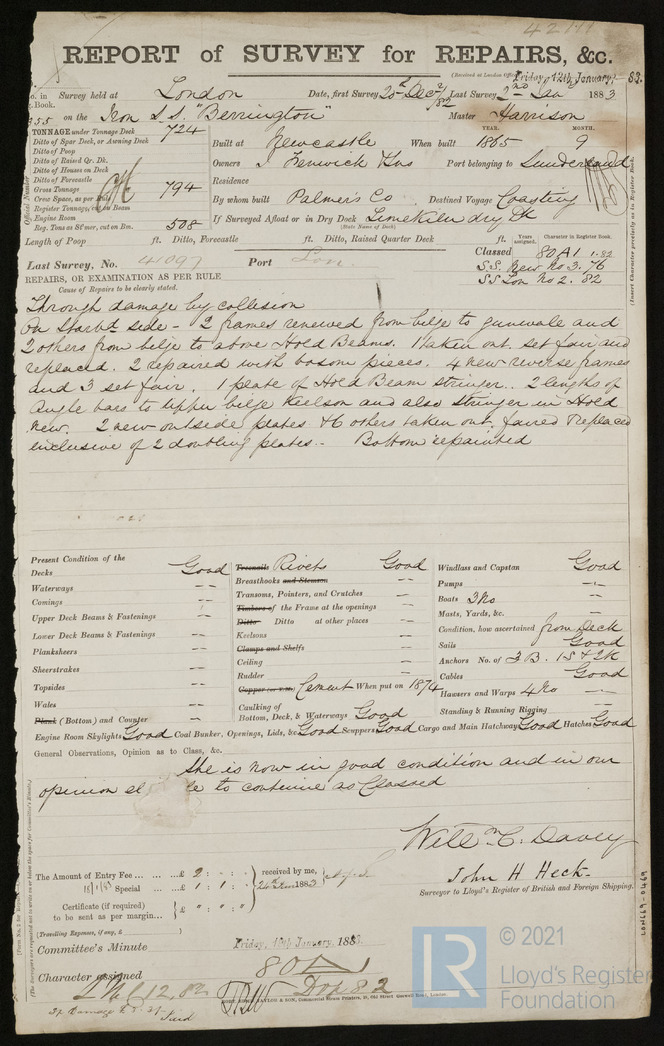 REPORT of SURVEY for REPAIRS, &c.
(Received at London Office Friday 12th January 83.
No. in Survey held at London Date, first Survey 20th Decr /82 Last Survey 2nd Jan 1883
Reg. Book.
355 on the Iron S.S. "Berrington" Master Harrison
TONNAGE under Tonnage Deck 724
Ditto of Spar Deck, or Awning Deck
Ditto of Poop
Ditto of Raised Qr. Dk.
Ditto of Houses on Deck
Ditto of Forecastle
Gross Tonnage 794
Crew Space, as per Rule
Register Tonnage, cut on Beam
Engine Room
Reg. Tons as St'mer, cut on Bm. 508
YEAR. MONTH.
Built at Newcastle When built 1865 9
Owners J Fenwick Port belonging to Sunderland
Residence
By whom built Palmer's Co Destined Voyage Coasting
If Surveyed Afloat or in Dry Dock Limekiln dry Dk
(State Name of Dock)
(Insert Character precisely as in Register Book.
Official Number
Length of Poop ft. Ditto, Forecastle ft. Ditto, Raised Quarter Deck ft.
Years assigned. Character in Register Book.
Classed 80A1 1.82
S.S. New No 3. 76
S.S Lon No 2. 82
Last Survey, No. 41097 Port Lon.
REPAIRS, OR EXAMINATION AS PER RULE
Cause of Repairs to be clearly stated.
Through damage by collision
On Starbd side - 2 frames renewed from bilge to gunwale and
2 others from bilge to above Hold Beams. 1 taken out set fair and
replaced. 2 repaired with bosom pieces. 4 new reverse frames
and 3 set fair. 1 plate of Hold Beam stringer.. 2 lengths of
Angle bars to upper bilge Keelson and also stringer in Hold
new. 2 new outside plates & 6 others taken out, faired & replaced
inclusive of 2 doubling plates.- Bottom repainted
Present Condition of the
Decks Good
Waterways
Comings
Upper Deck Beams & Fastenings
Lower Deck Beams & Fastenings
Planksheers
Sheerstrakes
Topsides
Wales
Plank (Bottom) and Counter
Treenails Rivets Good
Breasthooks and Stemson
Transoms, Pointers, and Crutches
Timbers of the Frame at the openings
Ditto Ditto at other places
Keelsons
Clamps and Shelfs
Ceiling
Rudder
Copper (or Y.M.) Cement When put on 1874
Caulking of
Bottom, Deck, & Waterways Good
Windlass and Capstan Good
Pumps
Boats 3 No
Masts, Yards, &c.
Condition, how ascertained from Deck
Sails Good
Anchors No. of 3 B. 1 S & 2 K
Cables Good
Hawsers and Warps 4 No
Standing & Running Rigging
Engine Room Skylights Good Coal Bunker, Openings, Lids, &c Good Scuppers Good Cargo and Main Hatchway Good Hatches Good
General Observations, Opinion as to Class, &c.
She is now in good condition and in our
opinion to continue as Classed
Willm C. Davey
John H Heck
Surveyor to Lloyd's Register of British and Foreign Shipping.
The Amount of Entry Fee ... £ 2 : :
15/1/83 Special ... £ 1 : 1 :
received by me,
1883
Certificate (if required)
to be sent as per margin...
£ " : " : "
(Travelling Expenses, if any, £ )
Committee's Minute Friday, 19th January, 1883.
Character assigned 80A1
Drx 82
LON 669-0469
LR
© 2021
Lloyd's Register
Foundation